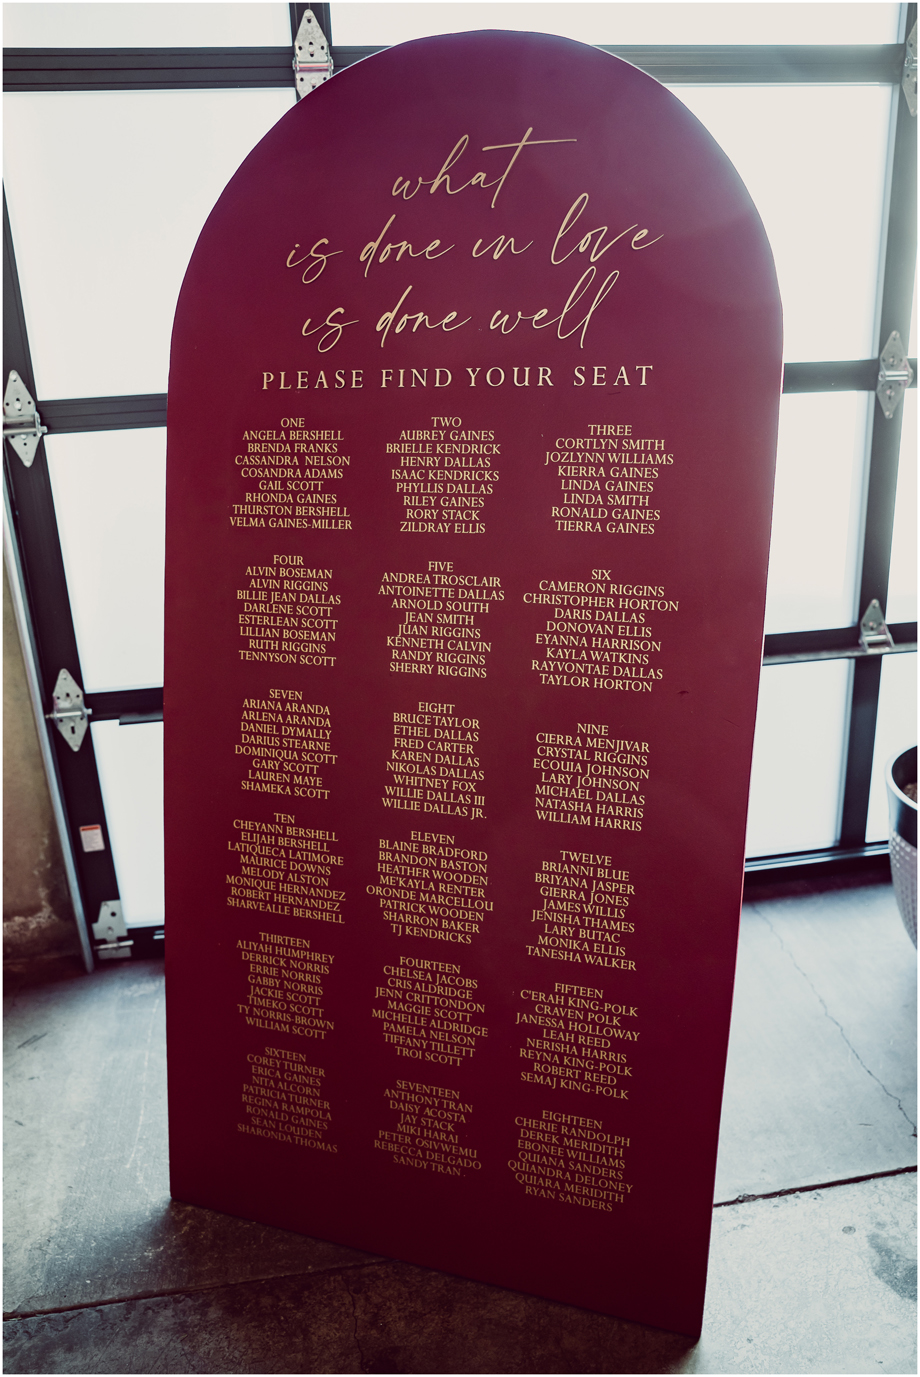 what
is done in love
is done well
PLEASE FIND YOUR SEAT
ONE
ANGELA BERSHELL
BRENDA FRANKS
CASSANDRA NELSON
COSANDRA ADAMS
GAIL SCOTT
RHONDA GAINES
THURSTON BERSHELL
VELMA GAINES-MILLER
TWO
AUBREY GAINES
BRIELLE KENDRICK
HENRY DALLAS
ISAAC KENDRICKS
PHYLLIS DALLAS
RILEY GAINES
RORY STACK
ZILDRAY ELLIS
THREE
CORTLYN SMITH
JOZLYNN WILLIAMS
KIERRA GAINES
LINDA GAINES
LINDA SMITH
RONALD GAINES
TIERRA GAINES
FOUR
ALVIN BOSEMAN
ALVIN RIGGINS
BILLIE JEAN DALLAS
DARLENE SCOTT
ESTERLEAN SCOTT
LILLIAN BOSEMAN
RUTH RIGGINS
TENNYSON SCOTT
FIVE
ANDREA TROSCLAIR
ANTOINETTE DALLAS
ARNOLD SOUTH
JEAN SMITH
JUAN RIGGINS
KENNETH CALVIN
RANDY RIGGINS
SHERRY RIGGINS
SIX
CAMERON RIGGINS
CHRISTOPHER HORTON
DARIS DALLAS
DONOVAN ELLIS
EYANNA HARRISON
KAYLA WATKINS
RAYVONTAE DALLAS
TAYLOR HORTON
SEVEN
ARIANA ARANDA
ARLENA ARANDA
DANIEL DYMALLY
DARIUS STEARNE
DOMINIQUA SCOTT
GARY SCOTT
LAUREN MAYE
SHAMEKA SCOTT
EIGHT
BRUCE TAYLOR
ETHEL DALLAS
FRED CARTER
KAREN DALLAS
NIKOLAS DALLAS
WHITNEY FOX
WILLIE DALLAS III
WILLIE DALLAS JR.
NINE
CIERRA MENJIVAR
CRYSTAL RIGGINS
ECOUIA JOHNSON
LARY JOHNSON
MICHAEL DALLAS
NATASHA HARRIS
WILLIAM HARRIS
TEN
CHEYANN BERSHELL
ELIJAH BERSHELL
LATIQUECA LATIMORE
MAURICE DOWNS
MELODY ALSTON
MONIQUE HERNANDEZ
ROBERT HERNANDEZ
SHARVEALLE BERSHELL
ELEVEN
BLAINE BRADFORD
BRANDON BASTON
HEATHER WOODEN
ME'KAYLA RENTER
ORONDE MARCELLOU
PATRICK WOODEN
SHARRON BAKER
TJ KENDRICKS
TWELVE
BRIANNI BLUE
BRIYANA JASPER
GIERRA JONES
JAMES WILLIS
JENISHA THAMES
LARY BUTAC
MONIKA ELLIS
TANESHA WALKER
THIRTEEN
ALIYAH HUMPHREY
DERRICK NORRIS
ERRIE NORRIS
GABBY NORRIS
JACKIE SCOTT
TIMEKO SCOTT
TY NORRIS-BROWN
WILLIAM SCOTT
FOURTEEN
CHELSEA JACOBS
CRIS ALDRIDGE
JENN CRITTONDON
MAGGIE SCOTT
MICHELLE ALDRIDGE
PAMELA NELSON
TIFFANY TILLETT
TROI SCOTT
FIFTEEN
C'ERAH KING-POLK
CRAVEN POLK
JANESSA HOLLOWAY
LEAH REED
NERISHA HARRIS
REYNA KING-POLK
ROBERT REED
SEMAJ KING-POLK
SIXTEEN
COREY TURNER
ERICA GAINES
NITA ALCORN
PATRICIA TURNER
REGINA RAMPOLA
RONALD GAINES
SEAN LOUDEN
SHARONDA THOMAS
SEVENTEEN
ANTHONY TRAN
DAISY ACOSTA
JAY STACK
MIKI HARAI
PETER OSIVWEMU
REBECCA DELGADO
SANDY TRAN
EIGHTEEN
CHERIE RANDOLPH
DEREK MERIDITH
EBONEE WILLIAMS
QUIANA SANDERS
QUIANDRA DELONEY
QUIARA MERIDITH
RYAN SANDERS